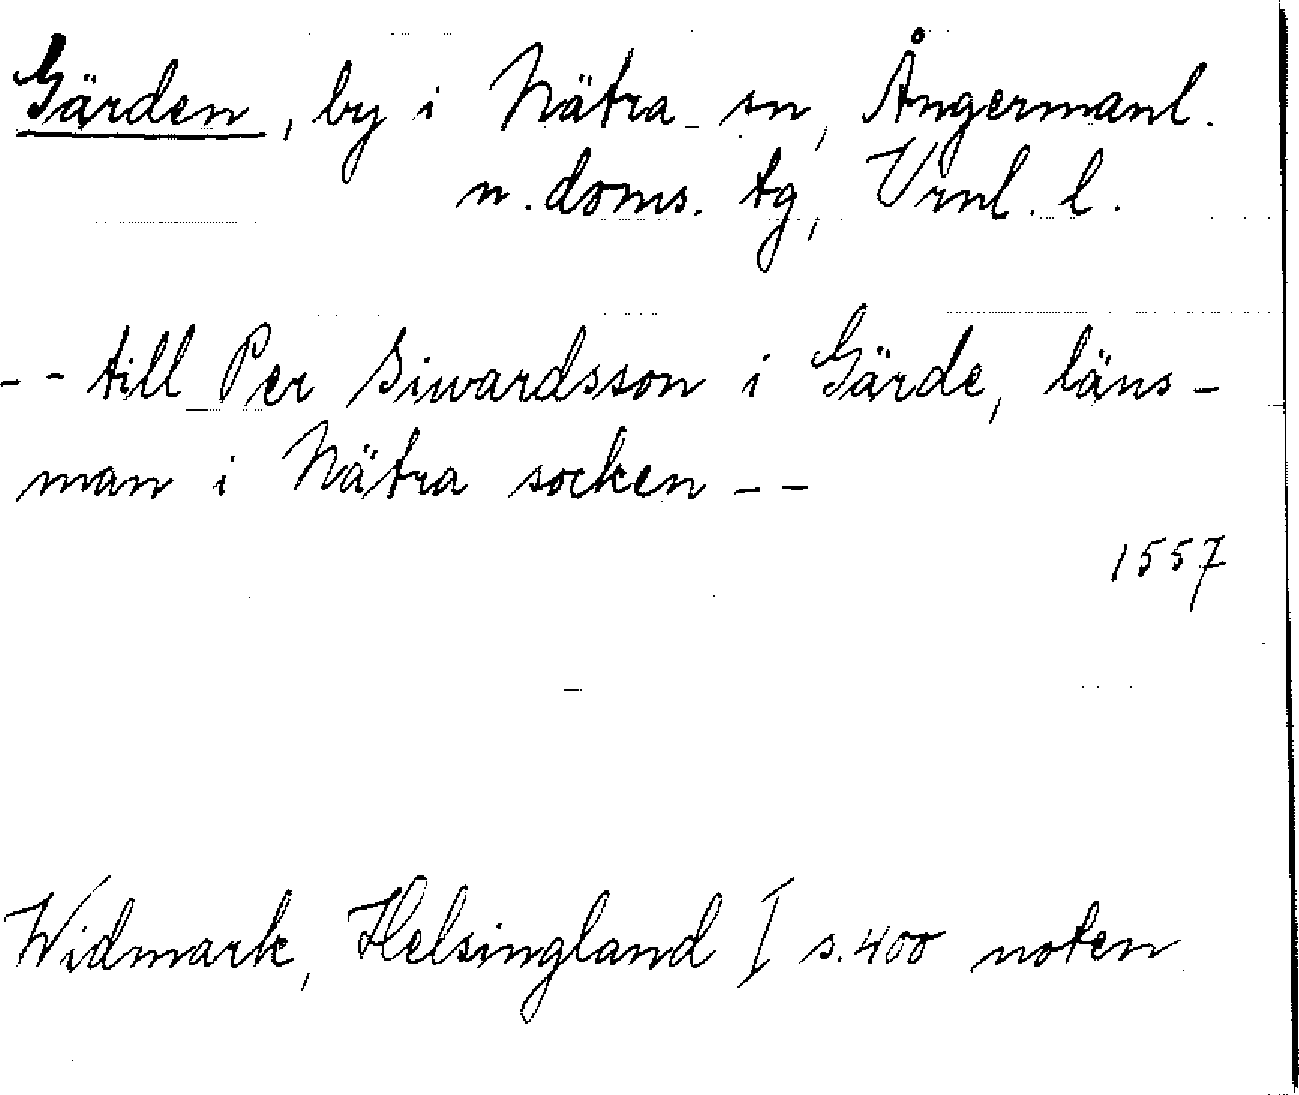 Gärden, by i Nätra sn, Ångermanl.
n. doms. tg, Vrnl. l.
-- till Per Siwardsson i Gärde, läns-
man i Nätra socken --
1557
Widmark, Helsingland I s. 400 noten